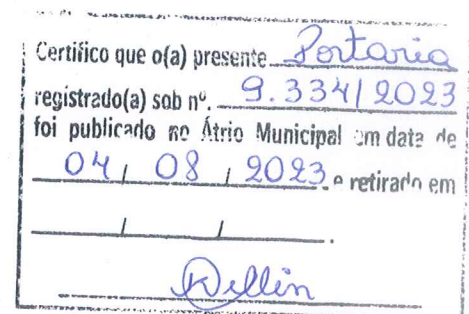 Certifico que o(a) presente Portaria
registrado(a) sob nº. 9.334/2023
foi publicado no Átrio Municipal em data de
04 / 08 / 2023 e retirado em
/ /.